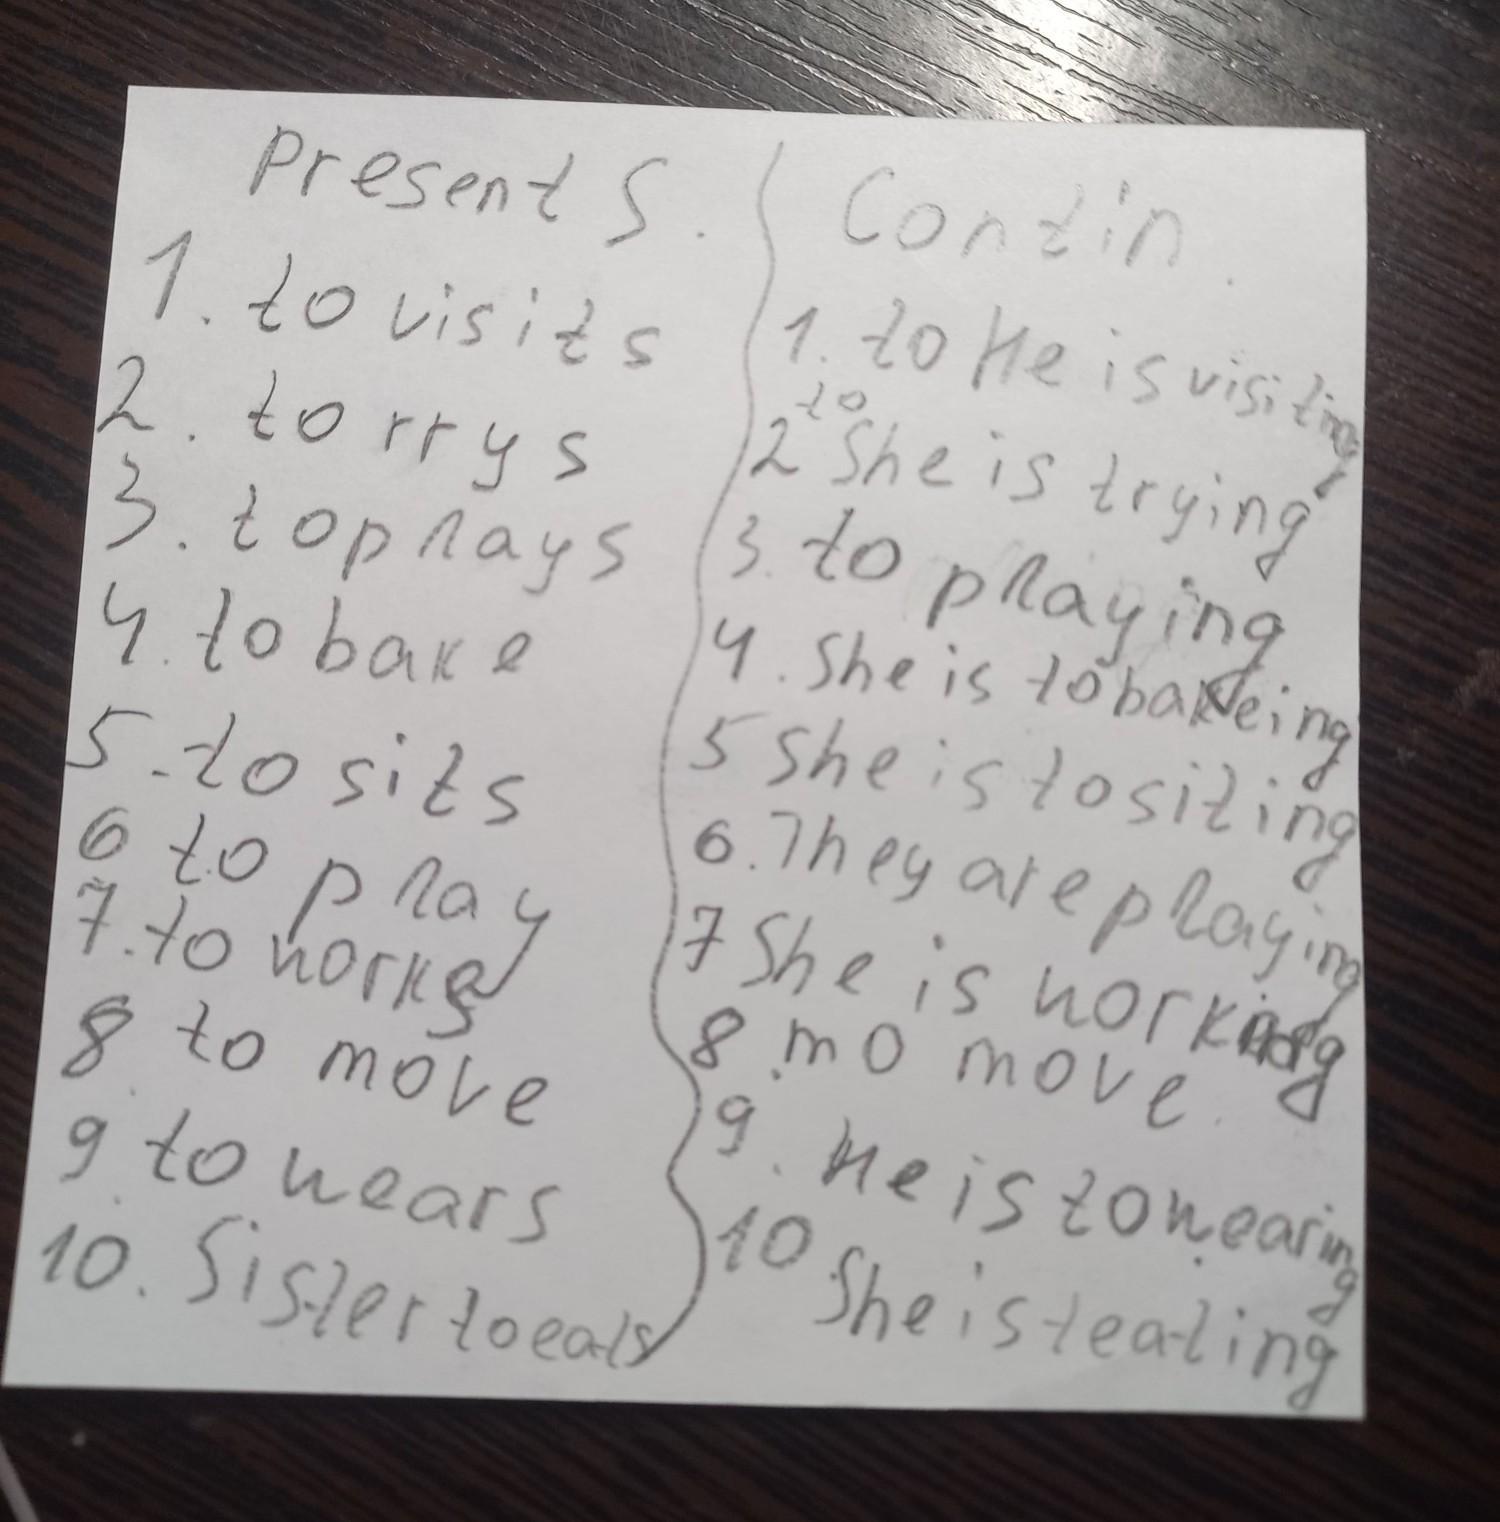 Present S.
1. to visits
2. to rrys
3. to plays
4. to bake
5. to sits
6 to play
7. to works
8. to move
9. to wears
10. Sister to eats
Contin.
1. to He is visiting
to
2 She is trying
3. to playing
4. She is to bakeing
5 She is to siting
6. They are playing
7 She is working
8. mo move.
9. He is to wearing
10 She is teating